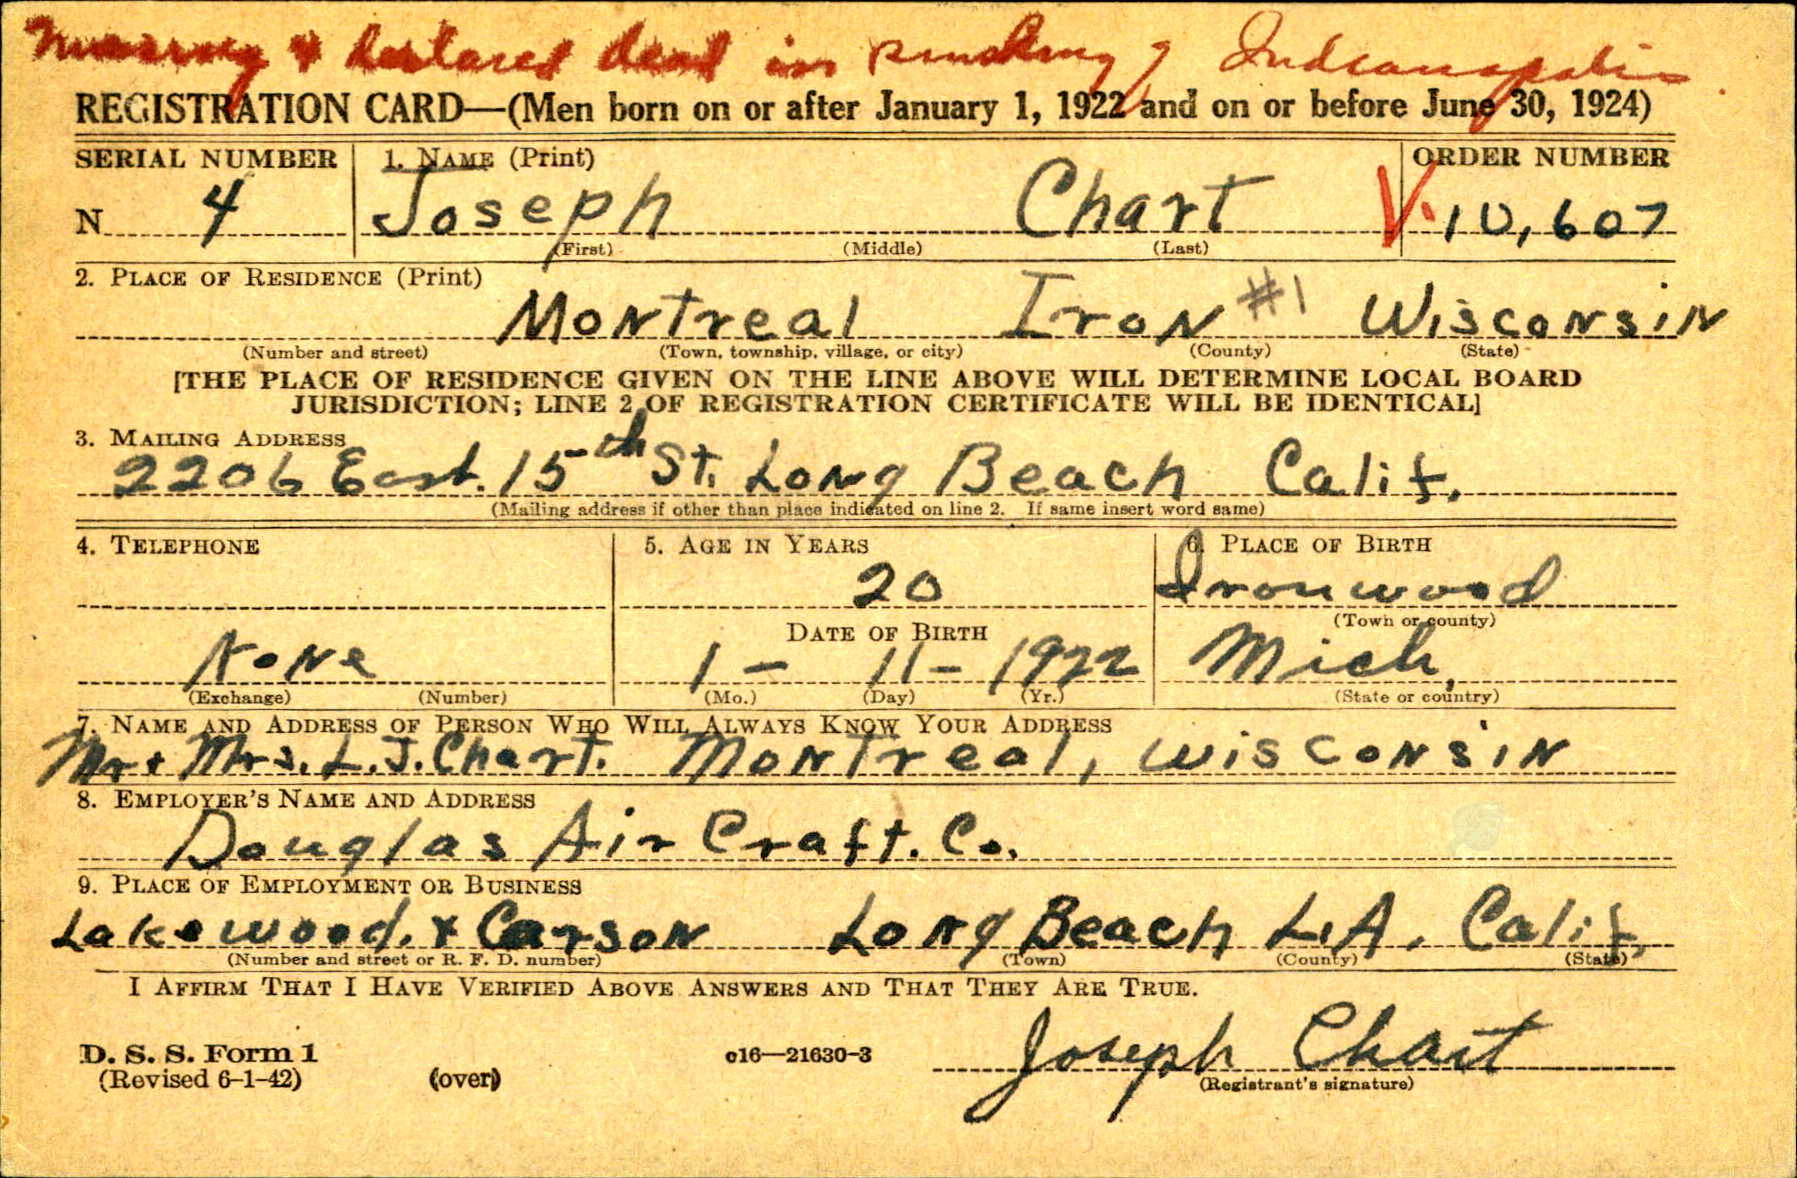 Missing & declared dead in sinking of Indianapolis
REGISTRATION CARD—(Men born on or after January 1, 1922 and on or before June 30, 1924)
SERIAL NUMBER 1. NAME (Print) ORDER NUMBER
N 4 Joseph Chart V. 10,607
(First) (Middle) (Last)
2. PLACE OF RESIDENCE (Print)
Montreal Iron #1 Wisconsin
(Number and street) (Town, township, village, or city) (County) (State)
[THE PLACE OF RESIDENCE GIVEN ON THE LINE ABOVE WILL DETERMINE LOCAL BOARD
JURISDICTION; LINE 2 OF REGISTRATION CERTIFICATE WILL BE IDENTICAL]
3. MAILING ADDRESS
2206 East. 15th St. Long Beach Calif.
(Mailing address if other than place indicated on line 2. If same insert word same)
4. TELEPHONE 5. AGE IN YEARS 6. PLACE OF BIRTH
20 Ironwood
DATE OF BIRTH (Town or county)
None 1 - 11 - 1922 Mich.
(Exchange) (Number) (Mo.) (Day) (Yr.) (State or country)
7. NAME AND ADDRESS OF PERSON WHO WILL ALWAYS KNOW YOUR ADDRESS
Mr + Mrs. L.J. Chart. Montreal, Wisconsin
8. EMPLOYER'S NAME AND ADDRESS
Douglas Air Craft. Co.
9. PLACE OF EMPLOYMENT OR BUSINESS
Lakewood. & Carson Long Beach L.A. Calif.
(Number and street or R. F. D. number) (Town) (County) (State)
I AFFIRM THAT I HAVE VERIFIED ABOVE ANSWERS AND THAT THEY ARE TRUE.
D. S. S. Form 1 c16—21630-3 Joseph Chart
(Revised 6-1-42) (over) (Registrant's signature)